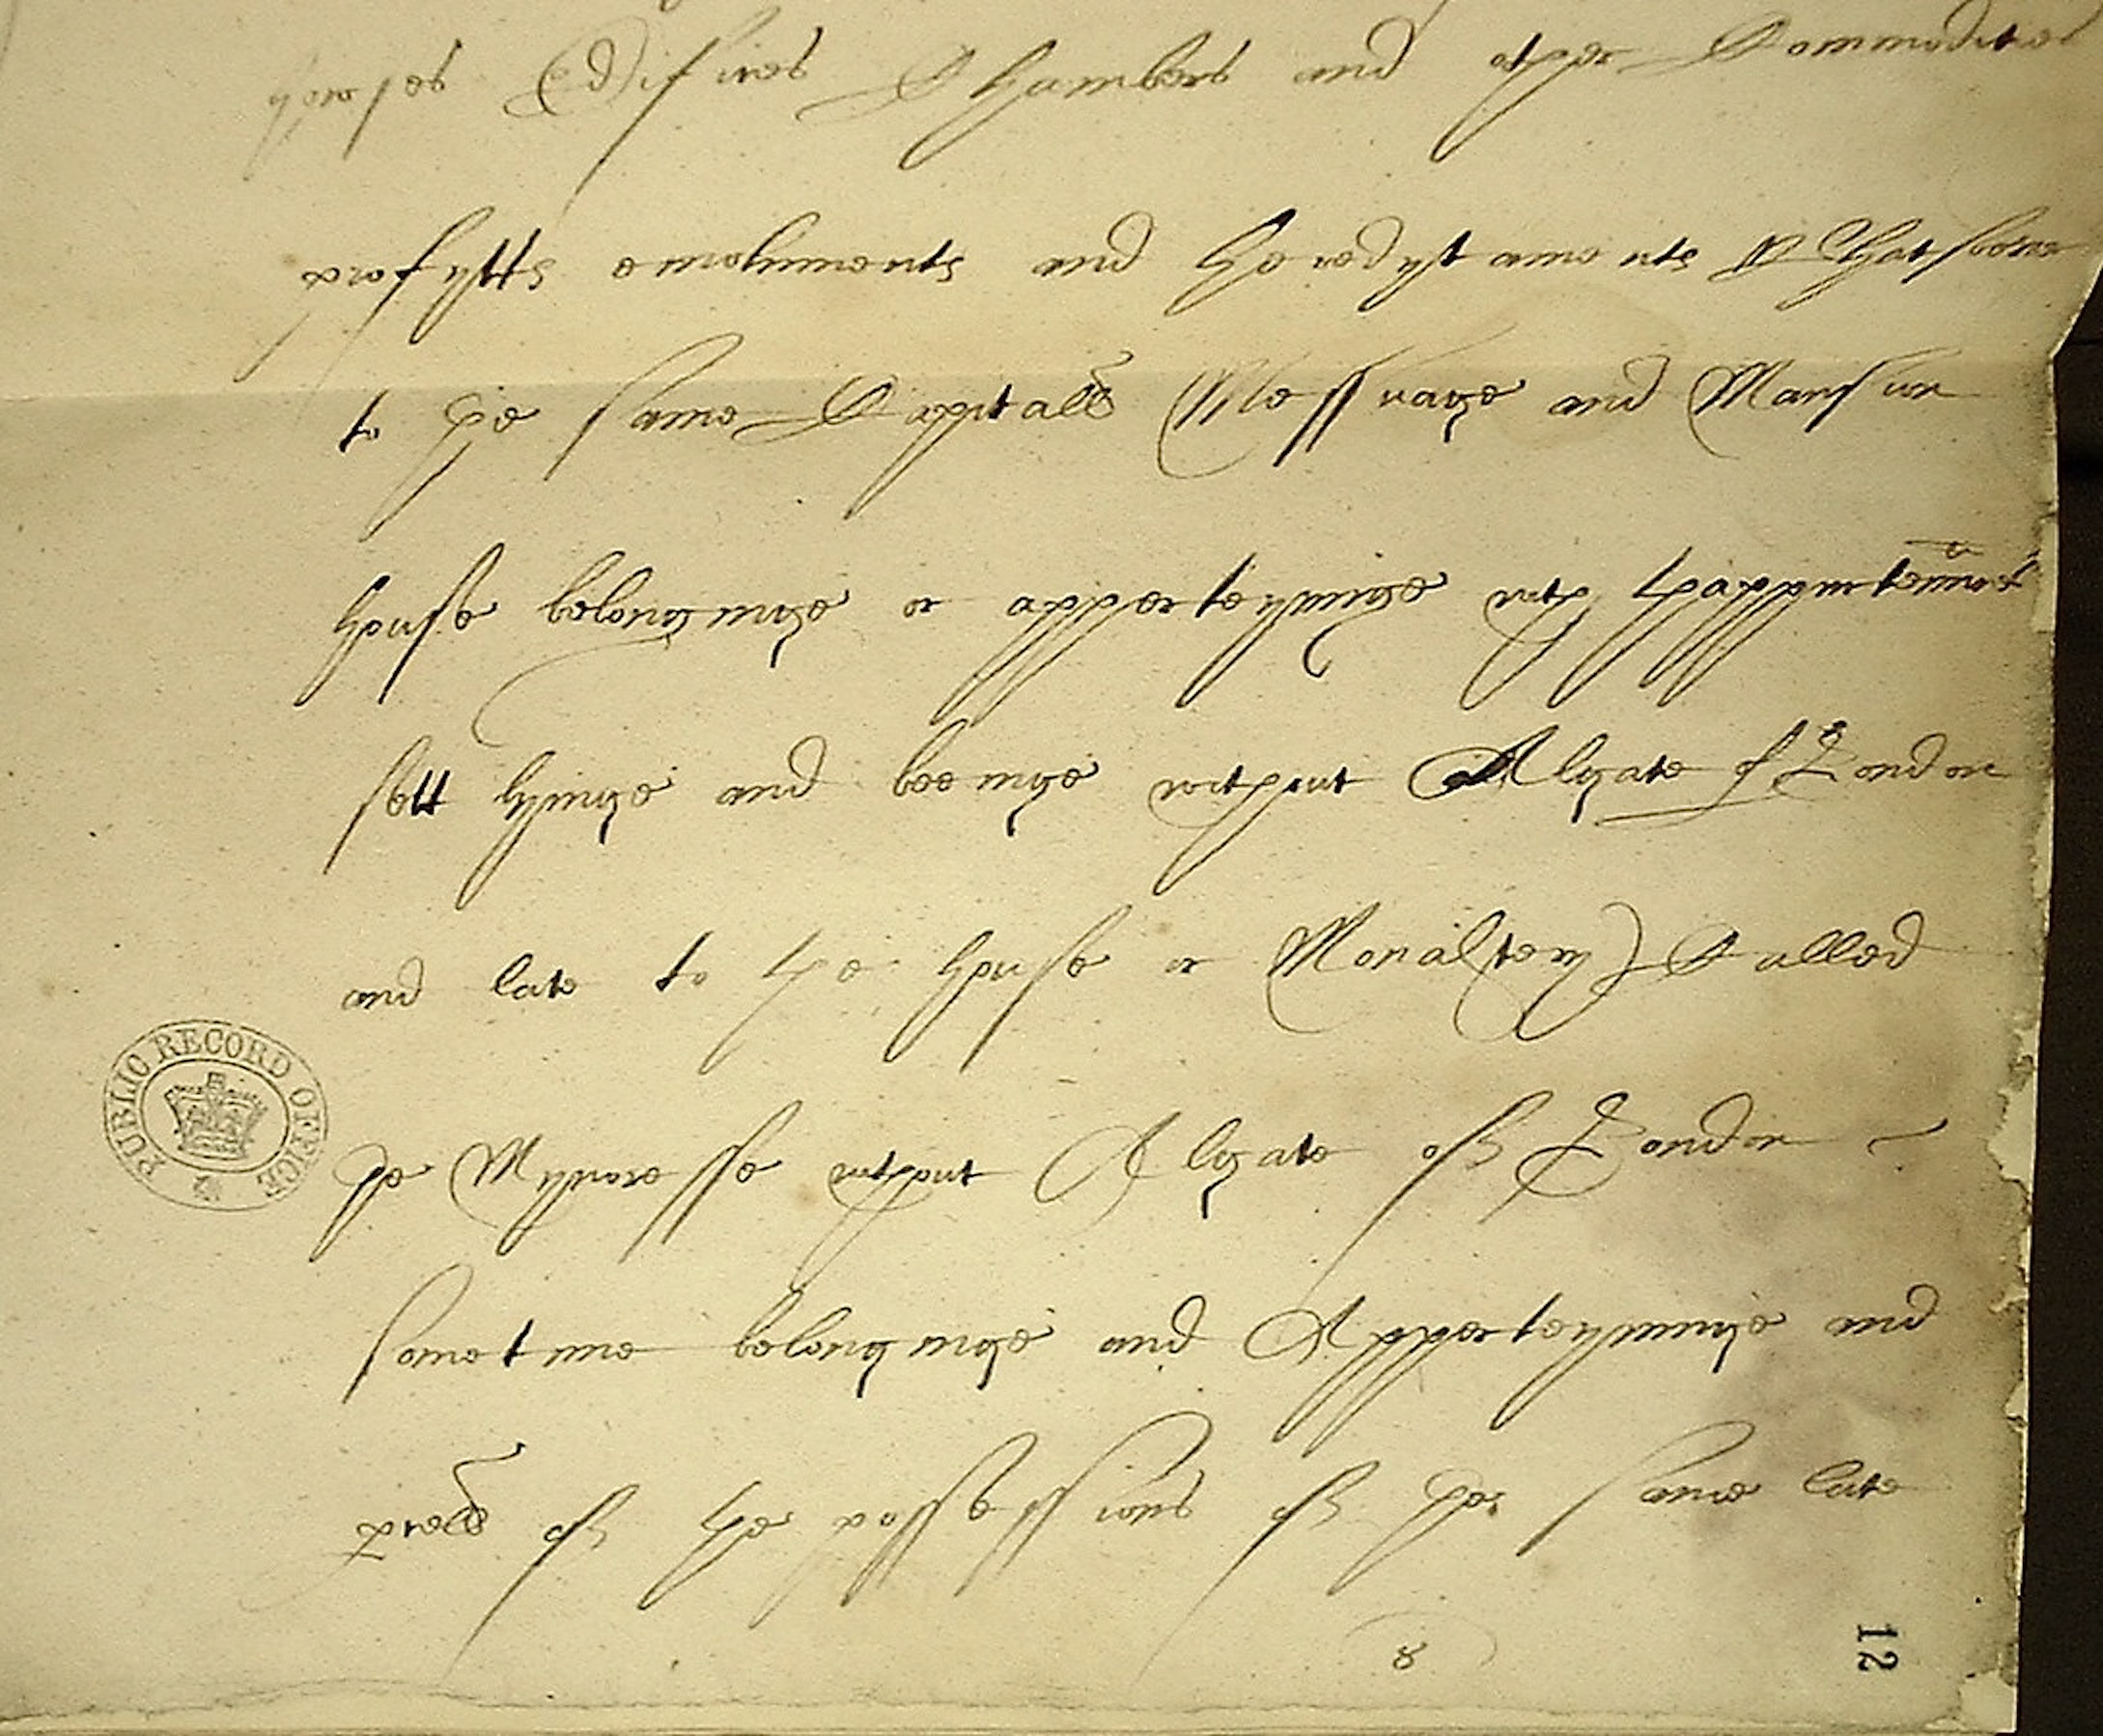 howses Edifices Chambers and other Commodities
profytts emolumentes and heredytamentes Whatsoever
to the same Capitall Messuage and Mansion
house belonginge or apperteyninge with thappurtennces
sett lyinge and beeinge without Algate of London
and late to the house or Monastery Called
the Mynoresse without Algate of London
sometime belonginge and Apperteyninge and
parcell of the possessions of the same late
8
12
PUBLIC RECORD OFFICE